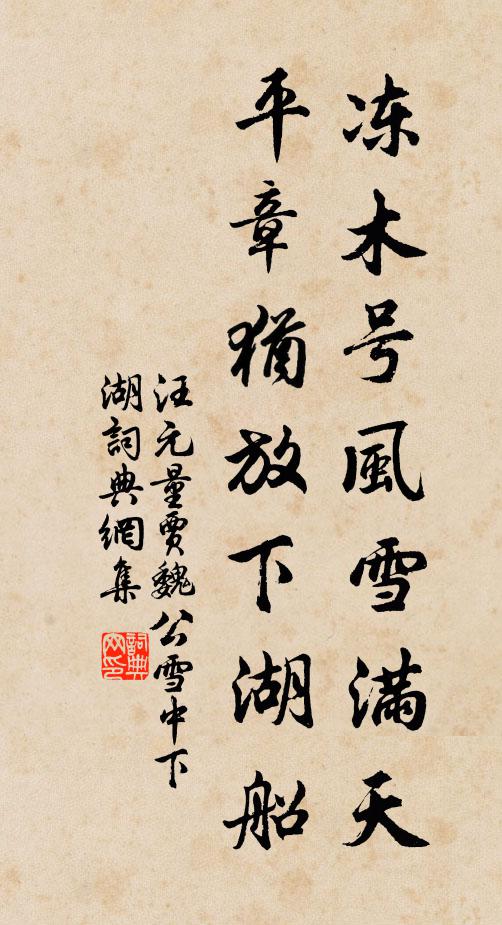 冻木号風雪満天
平章猶放下湖船
汪元量賈魏公雪中下
湖詞典網集
詞典
网印